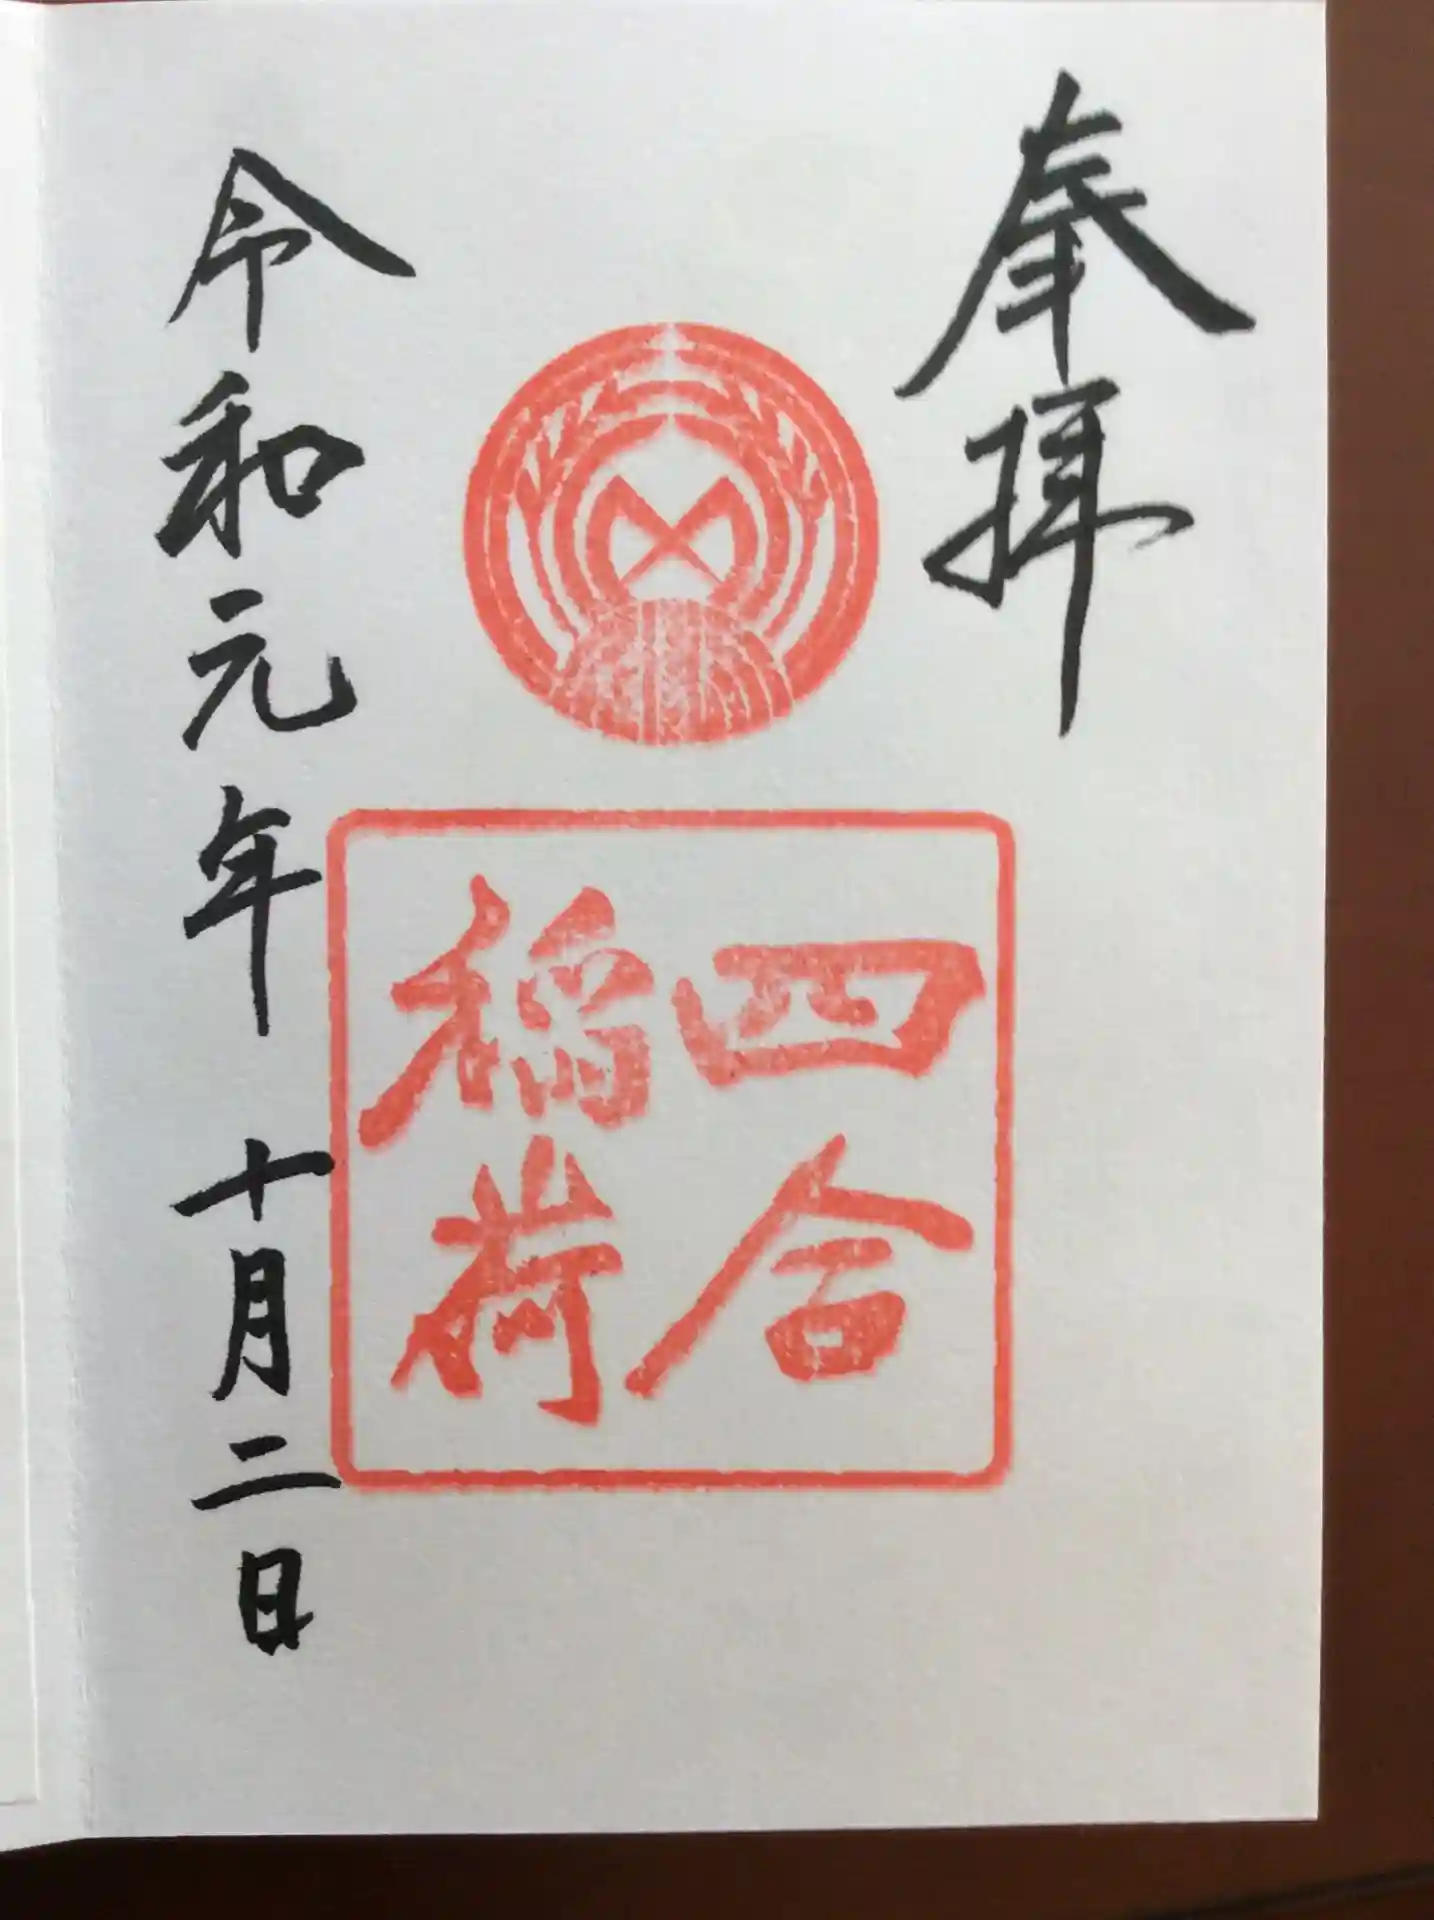 奉拝
四合
稲荷
令和元年 十月二日